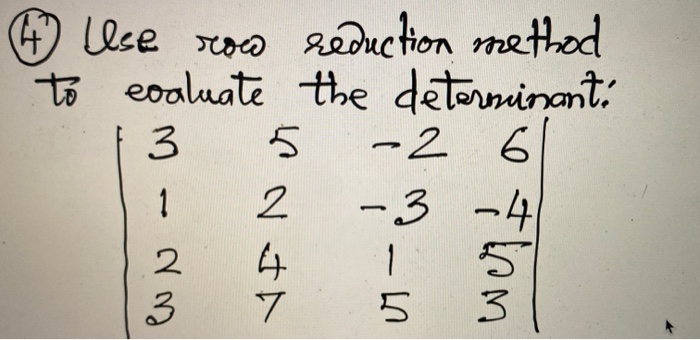 ④ Use row reduction method
to evaluate the determinant:
3 5 -2 6
1 2 -3 -4
2 4 1 5
3 7 5 3